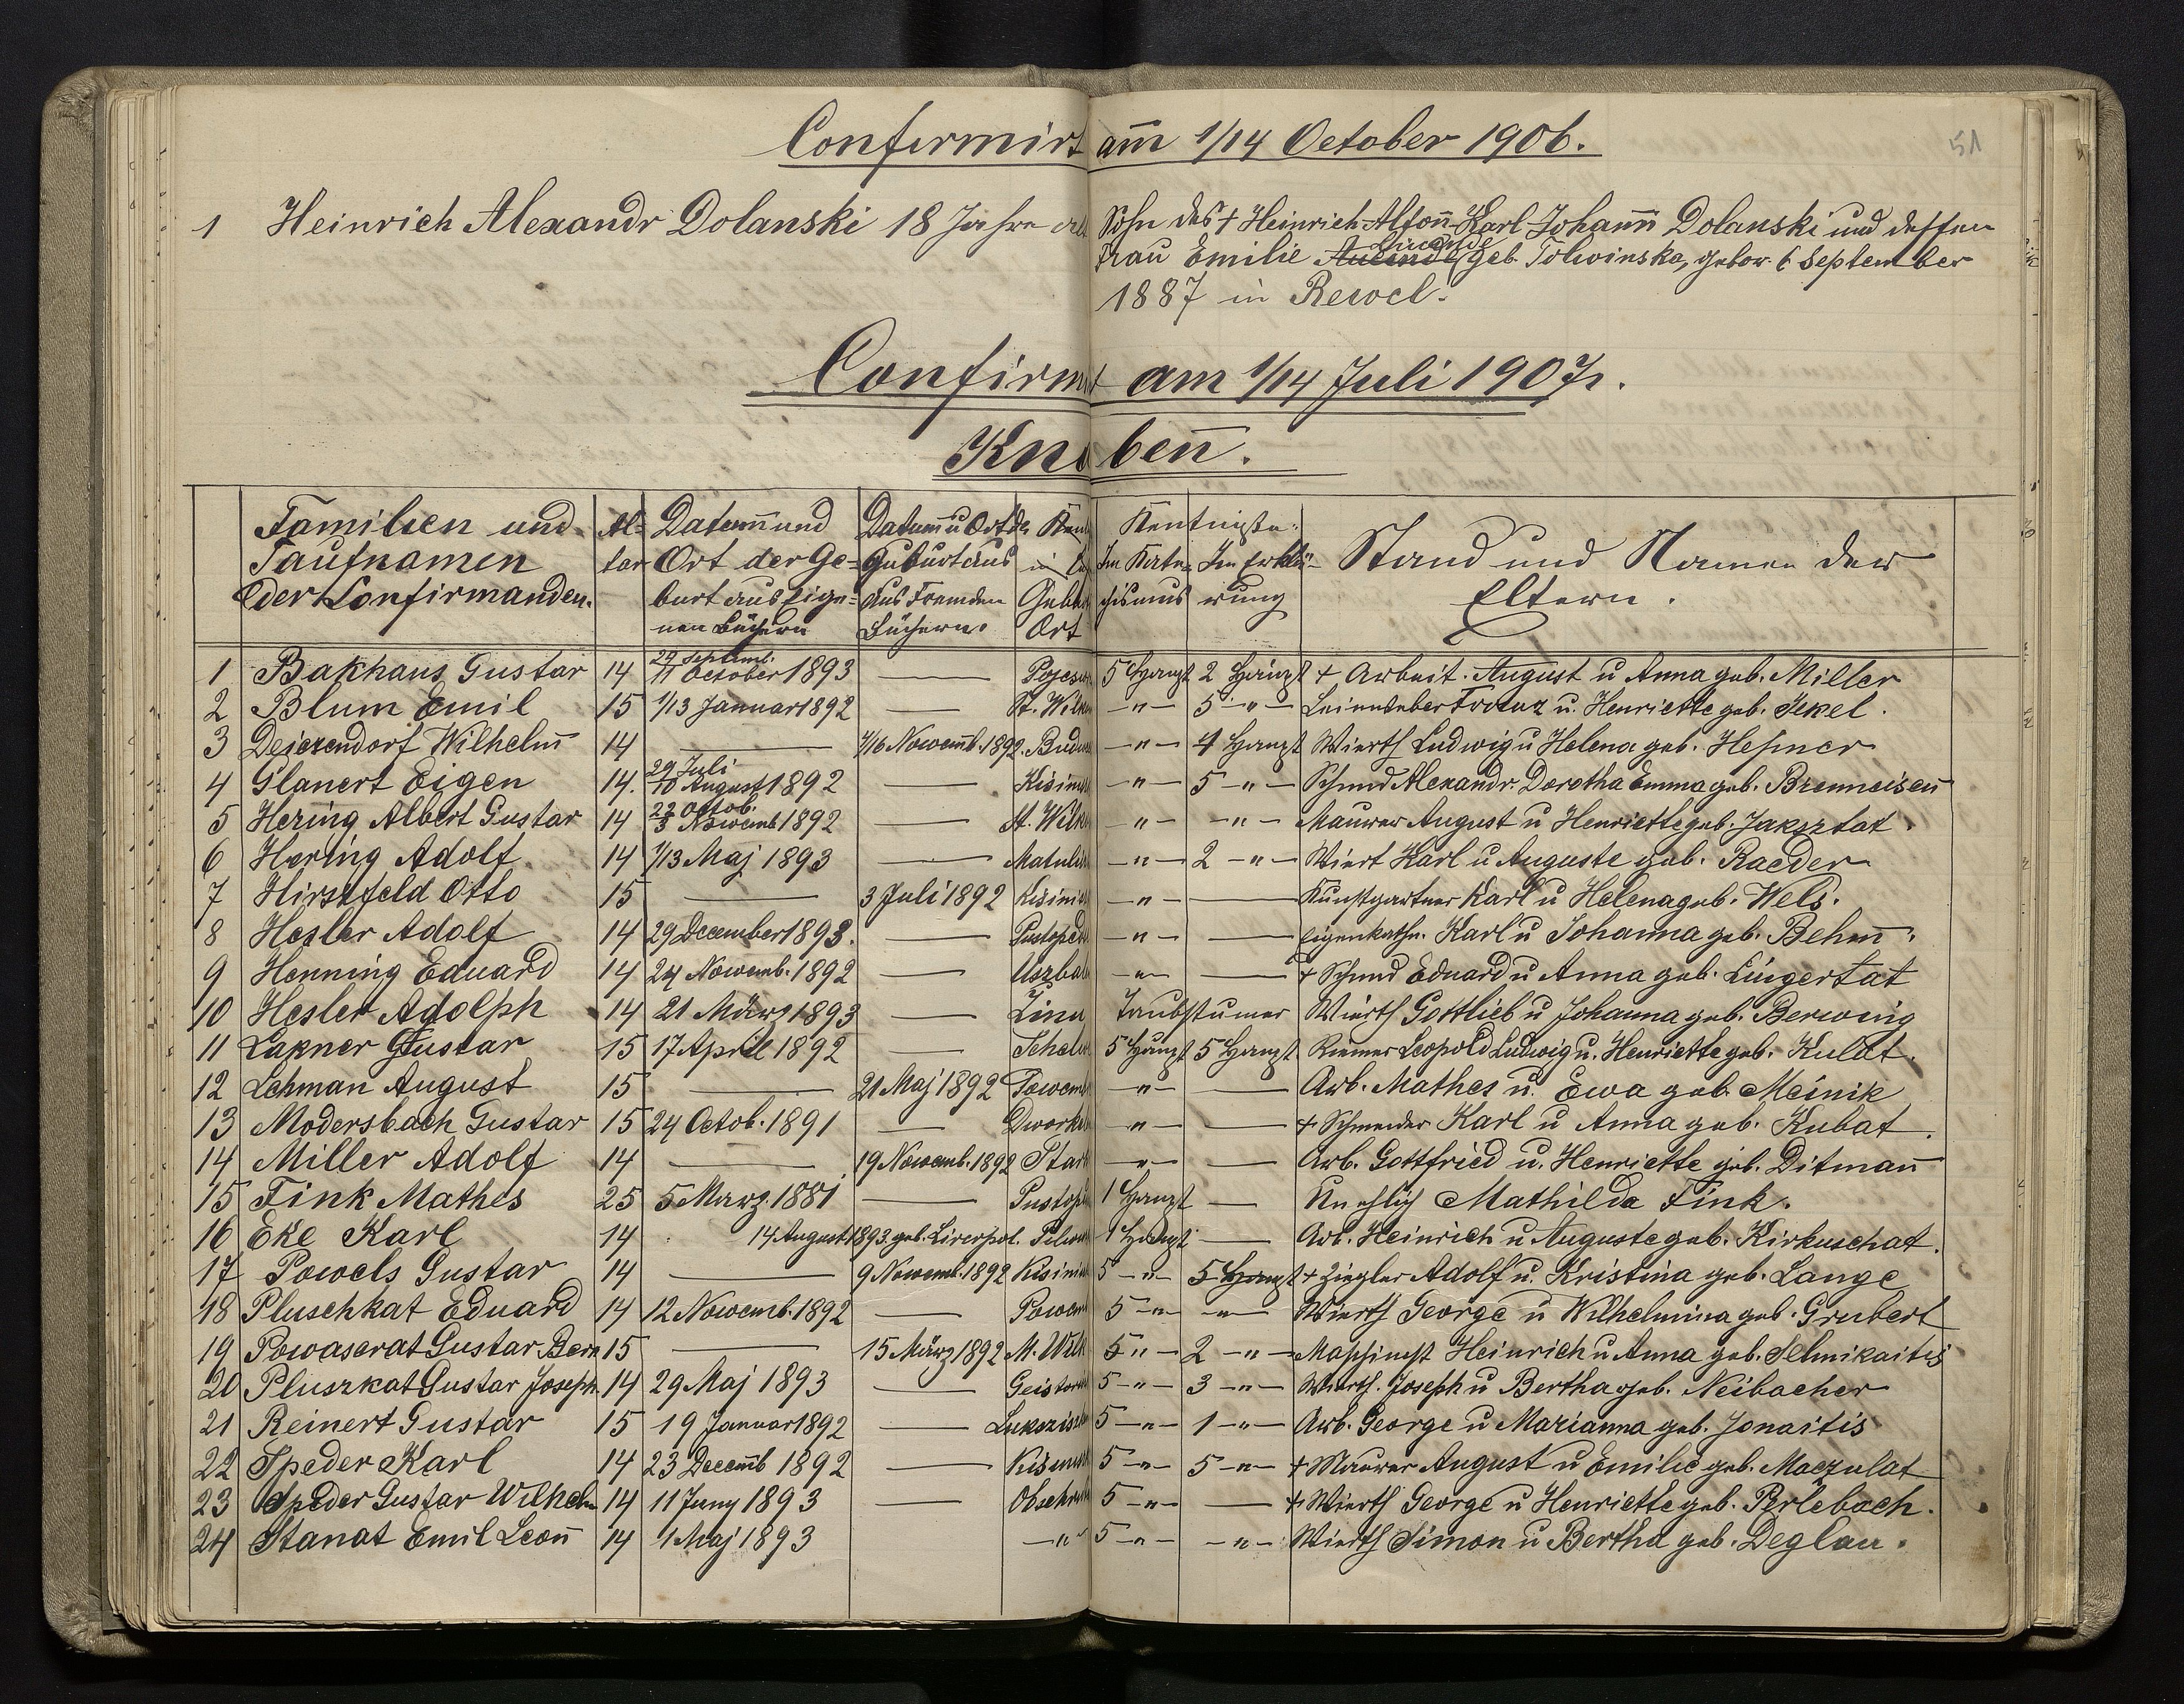 51
Confirmirt am 1/14 October 1906.
1 Heinrich Alexandr Dolanski 18 Jahre alt Sohn des † Heinrich-Alfon̄-Karl-Johan̄n Dolanski und dessen
Frau Emilie geb. Tolwinska, gebor. 6 September
1887 in Rewel.
Confirmt am 1/14 Juli 1907 r.
Knaben̄.
Familien und Taufnamen der Confirmanden. | Al-ter | Datum̄ und Ort der Ge-burt aus eige-nen Büchern | Datum̄ u Ort de Geburt aus aus Fremden Büchern. | Ort | Kentnisse: Im Kate-chismus | Im Erklä-rung | Stand und Namen der Eltern.
1 Bakhaus Gustav 14 29 Septemb. 11 October 1893 — 5 Haupt 2 Haupt + Arbeit. August u Anna geb. Miller
2 Blum Emil 15 1/13 Januar 1892 — St. Wilk -"- 5 -"- Leineweber Franz u. Henriette geb. Jekel.
3 Wilhelm̄ 14 — 4/16 Nowem̄b. 1892. Bud -"- 4 Haupt Wierth Ludwig u Helena geb. Hefner
4 Glanert Eigen 14. 29 Juli 10 August 1892 — Kisin -"- 5 -"- Schmid Alexandr. Dorotha Emma geb. Brenneisen̄
5 Hering Albert Gustav 14 22 Octob. 3 Nowemb 1892 — St. Wilk -"- -"- Maurer August u Henriette geb. Jaksztat.
6 Hering Adolf 14 1/13 Maj 1893 — Matulis -"- 2 -"- Wiert Karl u Auguste geb. Raeder
7 Hirschfeld Otto 15 — 3 Juli 1892 Kisini -"- — Kunstgartner Karl u Helena geb. Wels.
8 Hesler Adolf 14 29 December 1893. — Pustoped -"- — Eigenkathn. Karl u Johanna geb. Behm̄.
9 Henning Eduard 14 24 Nowemb. 1892 — Uszbal -"- — + Schmid Eduard u Anna geb. Lingertat
10 Hesler Adolph 14 21 März 1893 — Taubstumer Wierth Gottlieb u Johanna geb. Berwing
11 Lakner Gustav 15 17 April 1892 — Schel 5 Haupt 5 Haupt Riemer Leopold Ludwig u. Henriette geb. Kulat.
12 Lehman August 15 — 21 Maj 1892 Powem -"- — Arb. Mathes u. Ewa geb. Meinik
13 Modersbach Gustav 15 24 Octob. 1891 — Dwork -"- — + Schneider Karl u Anna geb. Kubat.
14 Miller Adolf 14 — 19 Nowemb. 1892 Star -"- — Arb. Gottfried u. Henriette geb. Ditman̄
15 Fink Mathes 25 5 Marz. 1881 — Pustop 1 Haupt — Unehlich Mathilda Fink.
16 Eke Karl 14 14 August 1893. geb. Liverpol. Pilw 1 Haupt — Arb. Heinrich u Auguste geb. Kirkuschat.
17 Powels Gustav 14 — 9 Nowem̄. 1892 Kisini 5 -"- 5 Haupt + Ziegler Adolf u. Kristina geb. Lange
18 Pluschkat Eduard 14 12 Nowemb. 1892 — Powem 5 -"- -"- Wierth George u Wilhelmina geb. Grubert
19 Powaserat Gustav Bern 15 — 15 März 1892 M. Wilk 5 "- 2 -"- Maschinist Heinrich u Anna geb. Selmikaitis
20 Pluszkat Gustav Joseph. 14 29 Maj 1893 — Geistar 5 -"- 3 -"- Wierth. Joseph u Bertha geb. Neibacher
21 Reinert Gustav 15 19 Januar 1892 — Lukszis 5 -"- 1 -"- Arb. George u Marianna geb. Jonaitis
22 Speder Karl 14 23 Decem̄b 1892 — Kisin 5 -"- 5 -"- + Maurer August u Emilie geb. Maczulat
23 Speder Gustav Wilhelm 14 11 Juny 1893 — Obschr 5 -"- — + Wierth George u Henriette geb. Perlebach.
24 Stanat Emil Leon̄ 14 1 Maj 1893 -"- 5 -"- -"- Wierth Simon u Bertha geb. Deglau.